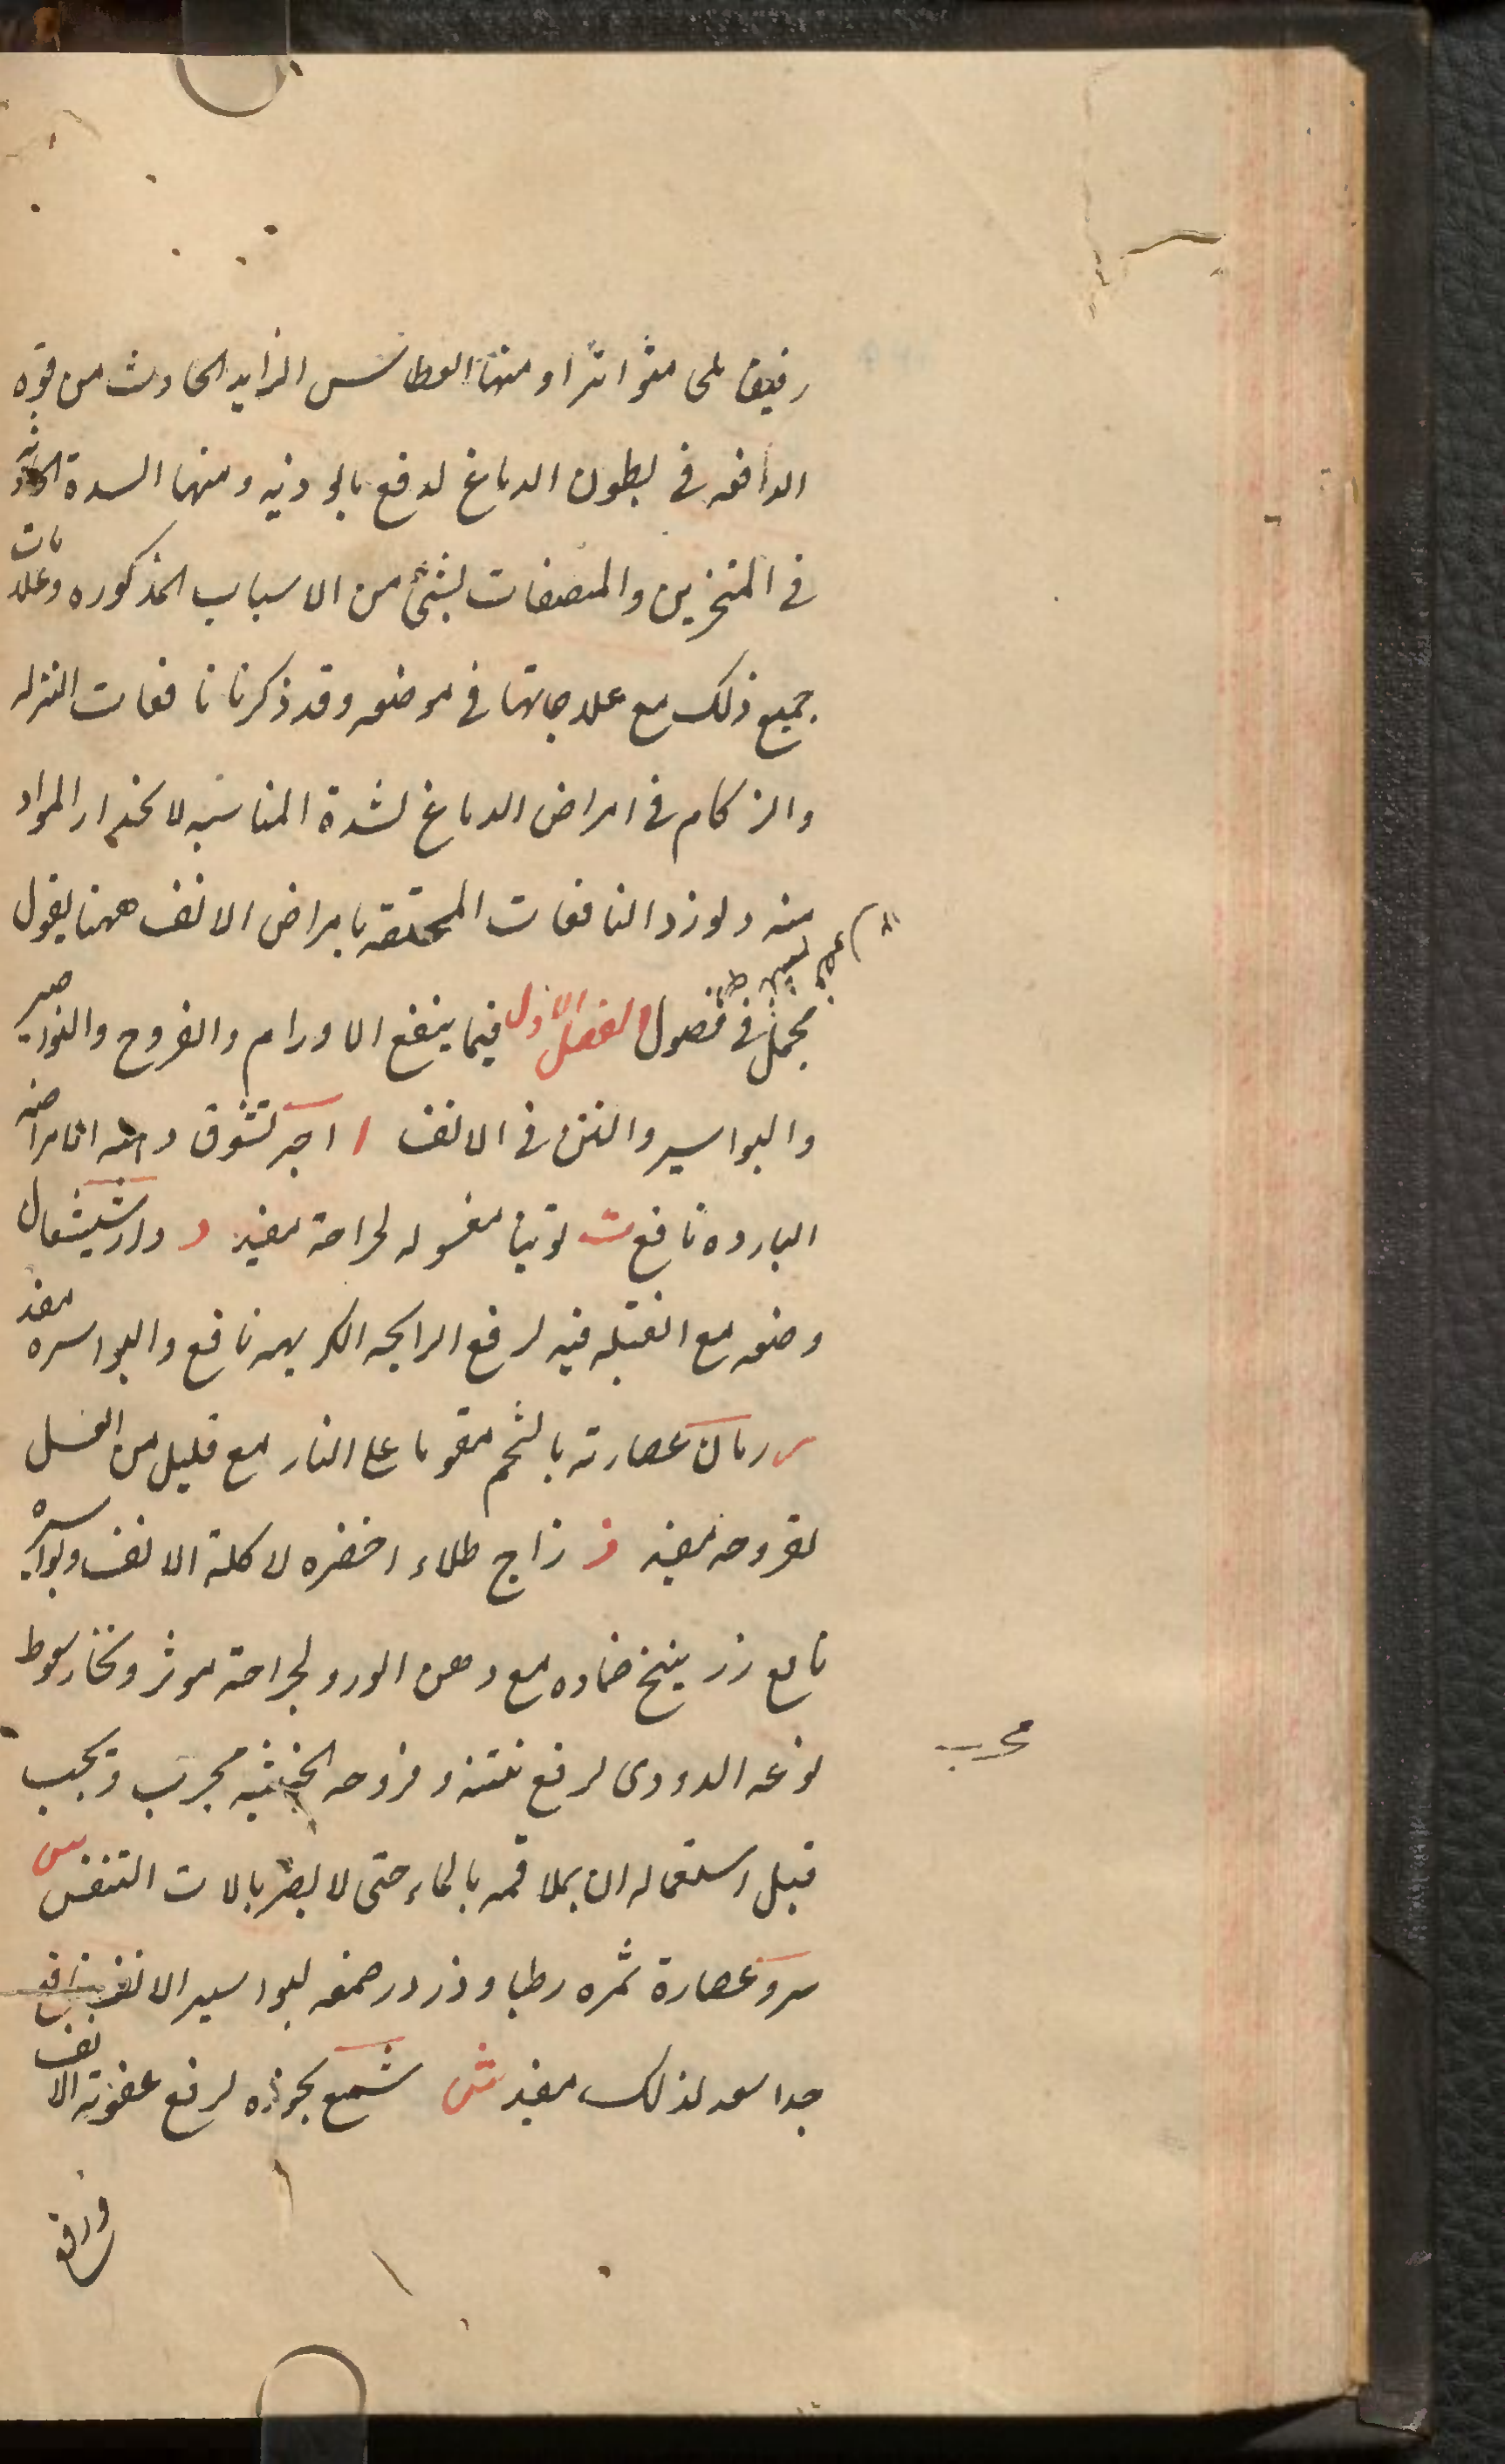 رقيق ملح متواترا ومنها العطاس الزايد الحادث من قوة
الدافعه فى بطون الدماغ لدفع مايوذيه ومنها السدة الحادثه
فى المنخرين والمصفات بشئ من الاسباب المذكوره وعلامات
جميع ذلك مع علاجاتها فى موضعه وقد ذكرنا نافعات النزله
والزكام فى امراض الدماغ لشدة المناسبه لانحدار المواد
منه ولنورد النافعات المختصه بامراض الانف ههنا بقول
مجمل فى فصول الفصل الاول فيما ينفع الاورام والقروح والنواصير
والبواسير والنتن فى الانف ا اجر نشوق دهنه لامراضه
البارده نافع ت توتيا مغسوله لجراحته مفيد د دارشيشعان
وضعه مع الفتيله فيه لرفع الرايحه الكريهه نافع والبواسيره مفيد
ر رمان عصارته بالشحم مقوما على النار مع قليل من العسل
لقروحه مفيد ز زاج طلاء اخضره لاكلة الانف وبواسيره
نافع زرنيخ ضماده مع دهن الورد لجراحته موثر وبخار سعوط
نوعه الدودى لرفع نتنه وقروحه الخبيثه مجرب ويجب
مجرب
قبل استعماله ان يملا فمه بالماء حتى لا يضر بالات التنفس س
سرو عصارة ثمره رطبا وذرور صمغه لبواسير الانف نافع
جدا سعد لذلك مفيد ش شمع بخوره لرفع عفونة الانف